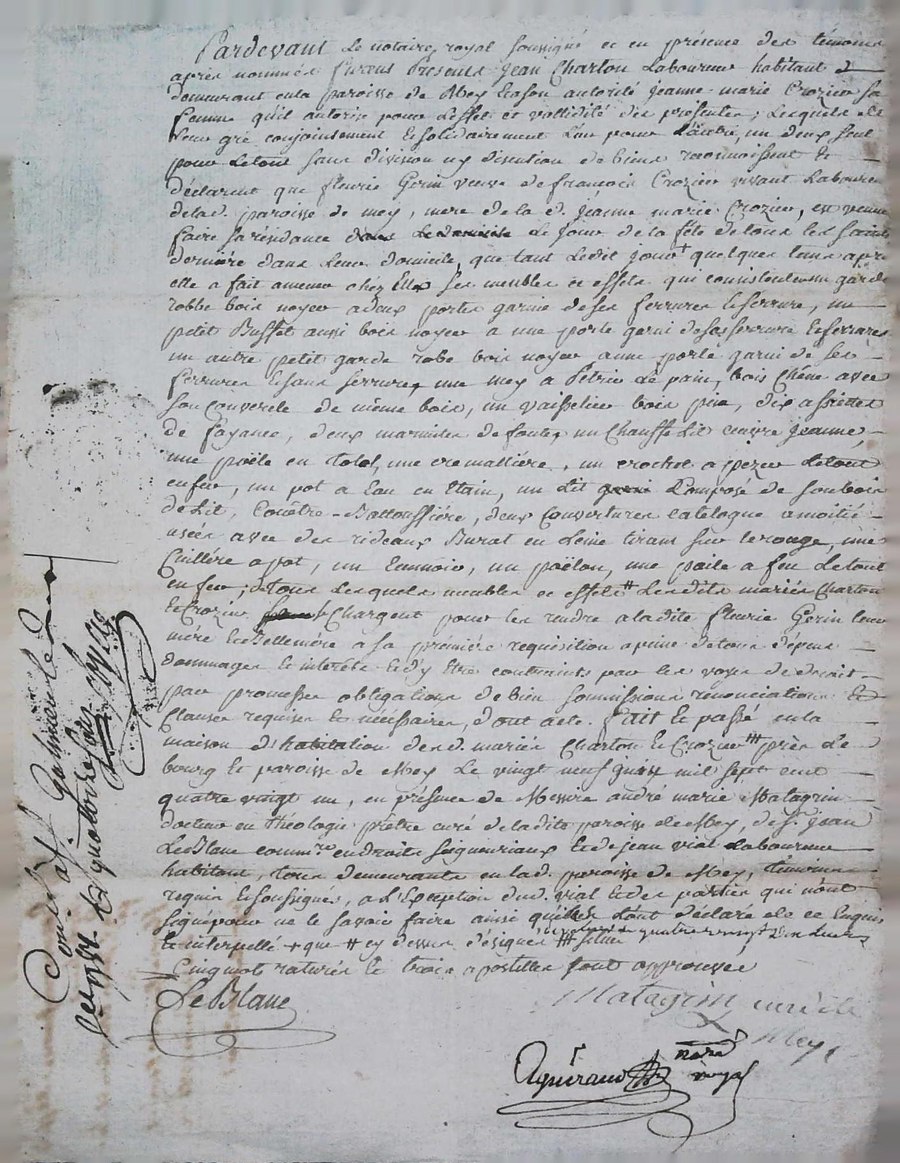 Pardevant Le notaire royal soussigné et en présence des témoins
après nommés furent Presents Jean Charton Laboureur habitant &
demeurant en la paroisse de Mey & de son autorité Jeanne marie Crozier sa
femme qu'il autorise pour L'effet et vallidité des présentes, Lesquels de
Leur gré conjointement & solidairement L'un pour L'autre, un deux seul
pour Le tout sans division ny discution de biens reconnoissent &
déclarent que fleurie Gerin veuve de françois Crozier vivant Laboureur
de lad. paroisse de mey, mere de la d. Jeanne marie Crozier, est venue
faire sa résidance Le Jour de la fête de tous Les Saints
dernière dans Leur domicile, que tant Ledit Jour + quelques tems après
elle a fait amener chez Eux Ses meubles et effets qui consistent en garde
robbe bois noyer a deux portes garnie de ses ferrures & serrure, un
petit Buffet aussi bois noyer a une porte garni de ses serrure & ferrures
un autre petit garde robe bois noyer a une porte garni de ses
ferrures & sans serrure, une mey a Pétrir Le pain, bois Chêne avec
son couvercle de même bois, un vaisselier bois pin, dix assiettes
de fayance, deux marmites de fonte, un Chauffe Lit cuivre jeaune,
une poële en Total, une cremallière, un crochet a pezer Le tout
en fer, un pot a Eau en Etain, un Lit Composé de son bois
de Lit, Couëtre - Battoussiére, deux Couvertures Catalogne a moitié
usées avec des rideaux Burat en Leine tirant sur Le rouge, une
Cuillére a pot, un un poëlon, une paile a feu Le tout
en fer; de Tous Lesquels meubles et effets # Lesdits mariés Charton
& Crozier se Chargent pour Les rendre a Ladite fleurie Gerin Leur
mére & Bellemére a sa premiére requisition a peine de tous dépens
dommages & intérêts & d'y être contraints par Les voyes de droit
par promesses obligations de bien soumissions rénonciations &
Clauses requises & nécessaires, dont acte. fait & passé en la
maison d'habitation desd. mariés Charton & Crozier ### près Le
bourg & paroisse de Mey Le vingt neuf mil sept cent
quatre vingt un, en présence de Messire andré marie Matagrin
docteur en Théologie prêtre curé de ladite paroisse de Mey, de Sr. Jean
LeBlanc commre. en droits seigneuriaux & de jean vial Laboureur
habitant, Tous demeurants en lad. paroisse de Mey, témoins
requis & soussignés, a L'Exception dud. vial & des parties qui n'ont
signé pour ne Le savoir faire ainsi qu'ils L'ont déclaré de ce Enquis
& interpellé + que # cy dessus désignés ### située
Cinq mots raturés & trois apostilles sont approuvés
LeBlanc
Matagrin curé de
Mey
Aguiraud
nore.
royal